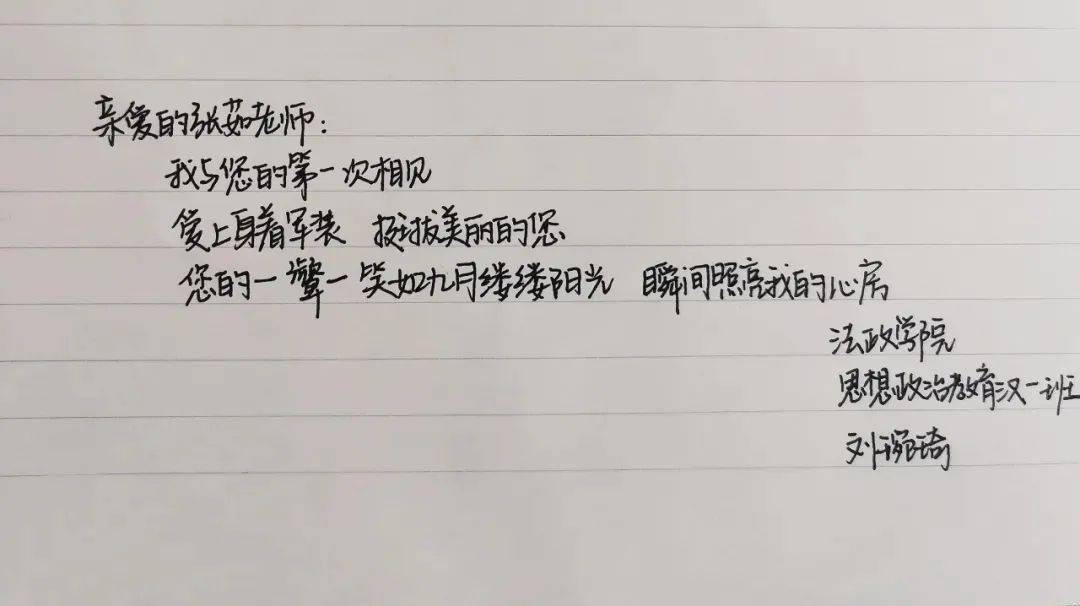 亲爱的张茹老师：
我与您的第一次相见
爱上身着军装 挺拔美丽的您
您的一颦一笑如九月缕缕阳光 瞬间照亮我的心房
法政学院
思想政治教育汉一班
刘琬琦